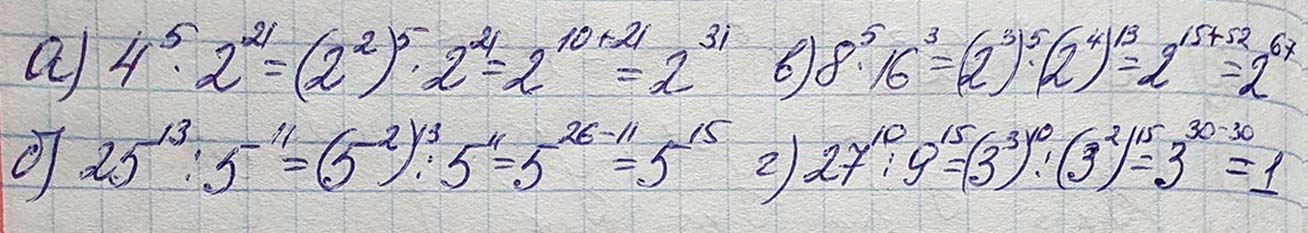 а) 4⁵ · 2²¹ = (2²)⁵ · 2²¹ = 2¹⁰⁺²¹ = 2³¹ в) 8⁵ · 16³ = (2³)⁵ · (2⁴)¹³ = 2¹⁵⁺⁵² = 2⁶⁷
б) 25¹³ : 5¹¹ = (5²)¹³ : 5¹¹ = 5²⁶⁻¹¹ = 5¹⁵ г) 27¹⁰ : 9¹⁵ = (3³)¹⁰ : (3²)¹⁵ = 3³⁰⁻³⁰ = 1